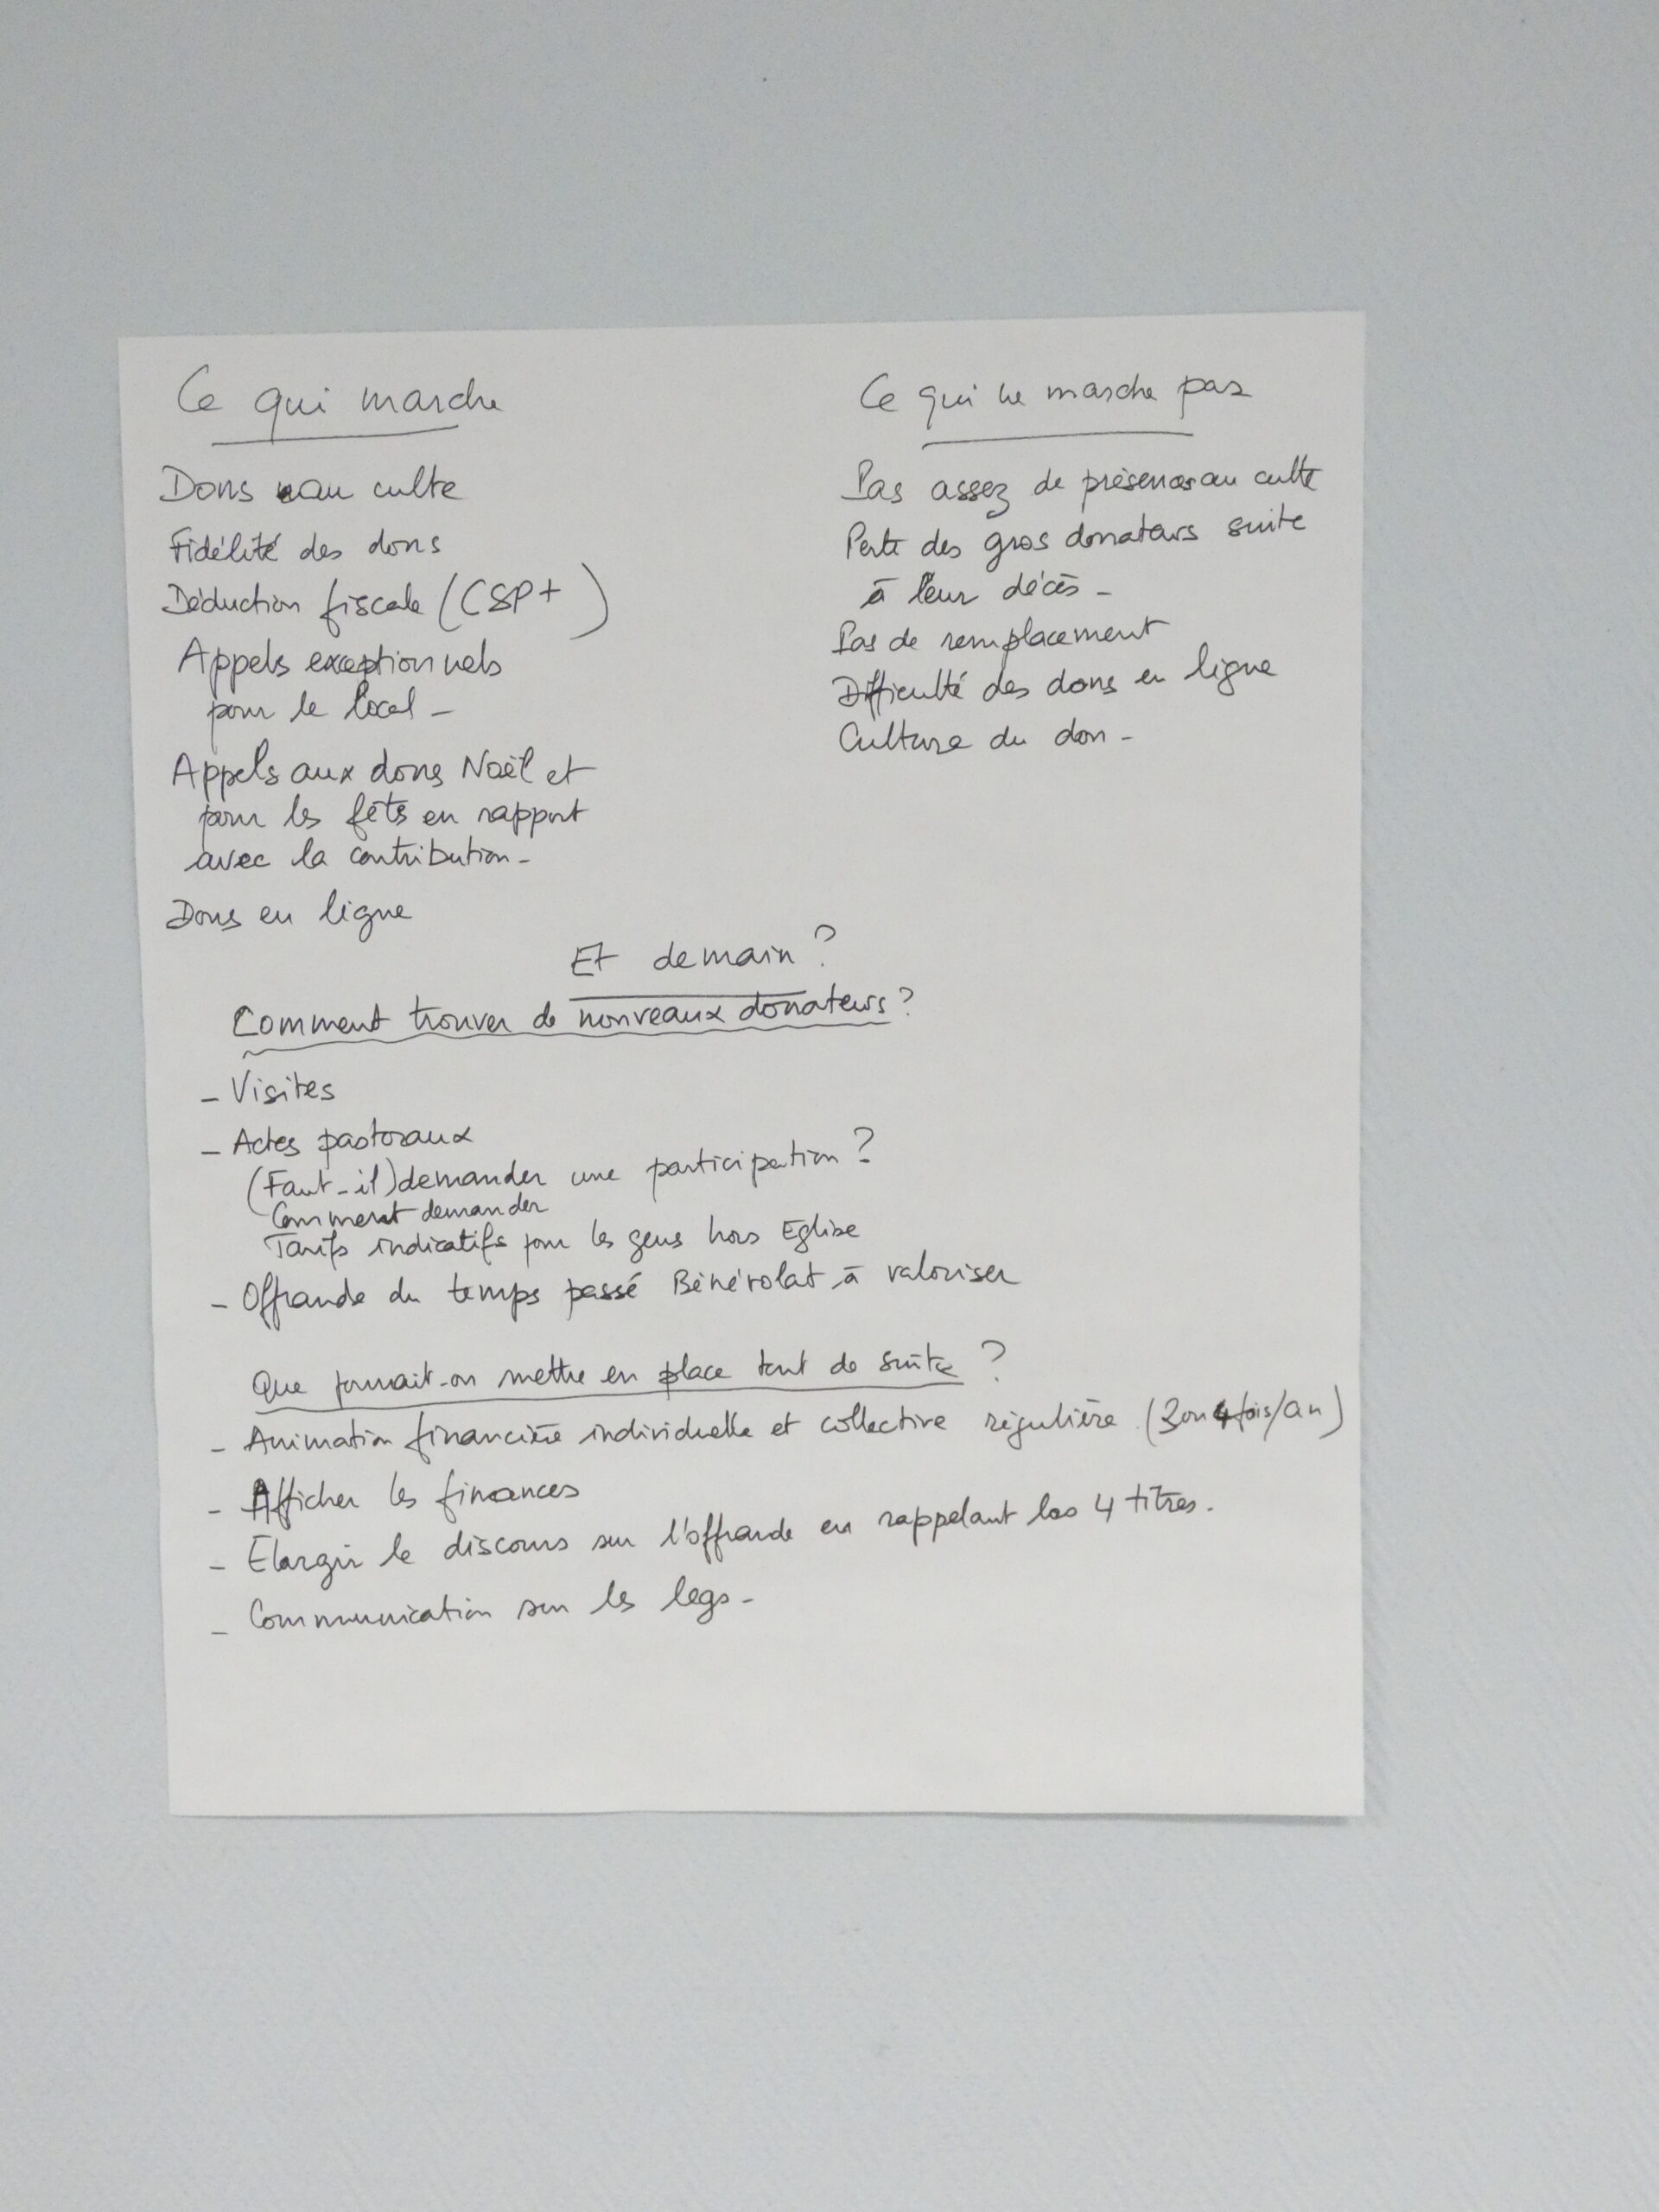 Ce qui marche
Dons au culte
Fidélité des dons
Déduction fiscale (CSP+)
Appels exceptionnels
pour le local -
Appels aux dons Noël et
pour les fêtes en rapport
avec la contribution -
Dons en ligne
Ce qui ne marche pas
Pas assez de présences au culte
Perte des gros donateurs suite
à leur décès -
Pas de remplacement
Difficulté des dons en ligne
Culture du don -
Et demain ?
Comment trouver de nouveaux donateurs ?
- Visites
- Actes pastoraux
(Faut-il) demander une participation ?
Comment demander
Tarifs indicatifs pour les gens hors Eglise
- Offrande du temps passé Bénévolat à valoriser
Que pourrait-on mettre en place tout de suite ?
- Animation financière individuelle et collective régulière (3 ou 4 fois/an)
- Afficher les finances
- Elargir le discours sur l'offrande en rappelant les 4 titres.
- Communication sur les legs -